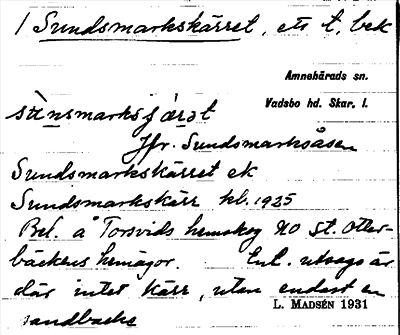 / Sundsmarkskärret, ets t. bek
Amnehärads sn.
Vadsbo hd. Skar. l.
Jfr. Sundsmarksåsen
Sundsmarkskärret ek
Sundsmarkskärr kb. 1925
Bel. å Torsvids hemskog NO St. Otter-
bäckens hemägor. Enl. utsago är
där intet kärr, utan endast en
sandbacke
L. MADSÉN 1931